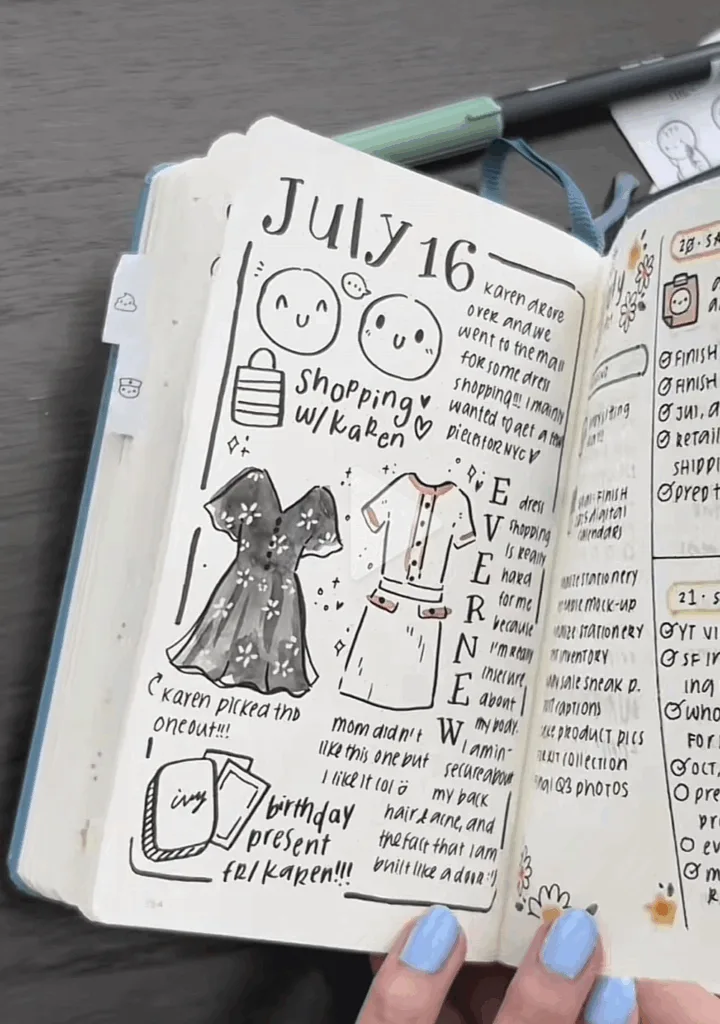 July 16
Karen drove
over and we
went to the mall
for some dress
shopping!!! I mainly
wanted to get a few
pieces for NYC
shopping
w/ Karen
EVERNEW
dress
shopping
is really
hard
for me
because
I'm really
insecure
about
my body.
I am in-
secure about
my back
hair & acne, and
the fact that I am
built like a door :')
Karen picked this
one out!!!
mom didn't
like this one but
I like it lol
birthday
present
fr/ Karen!!!
20. SA
FINISH
FINISH
JUL, A
RETAIL
SHIPPI
prep t
FINISH
digital
calendars
stationery
mock-up
stationery
inventory
sale sneak p.
captions
product pics
collection
Q3 photos
21. S
YT VI
SF IN
ing
who
for
OCT.
pre
pr
ev
m